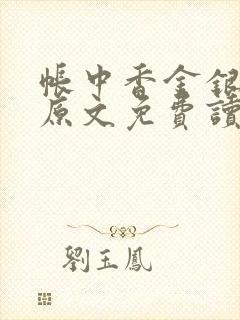 帳中香金銀
原文免費讀
劉玉鳳